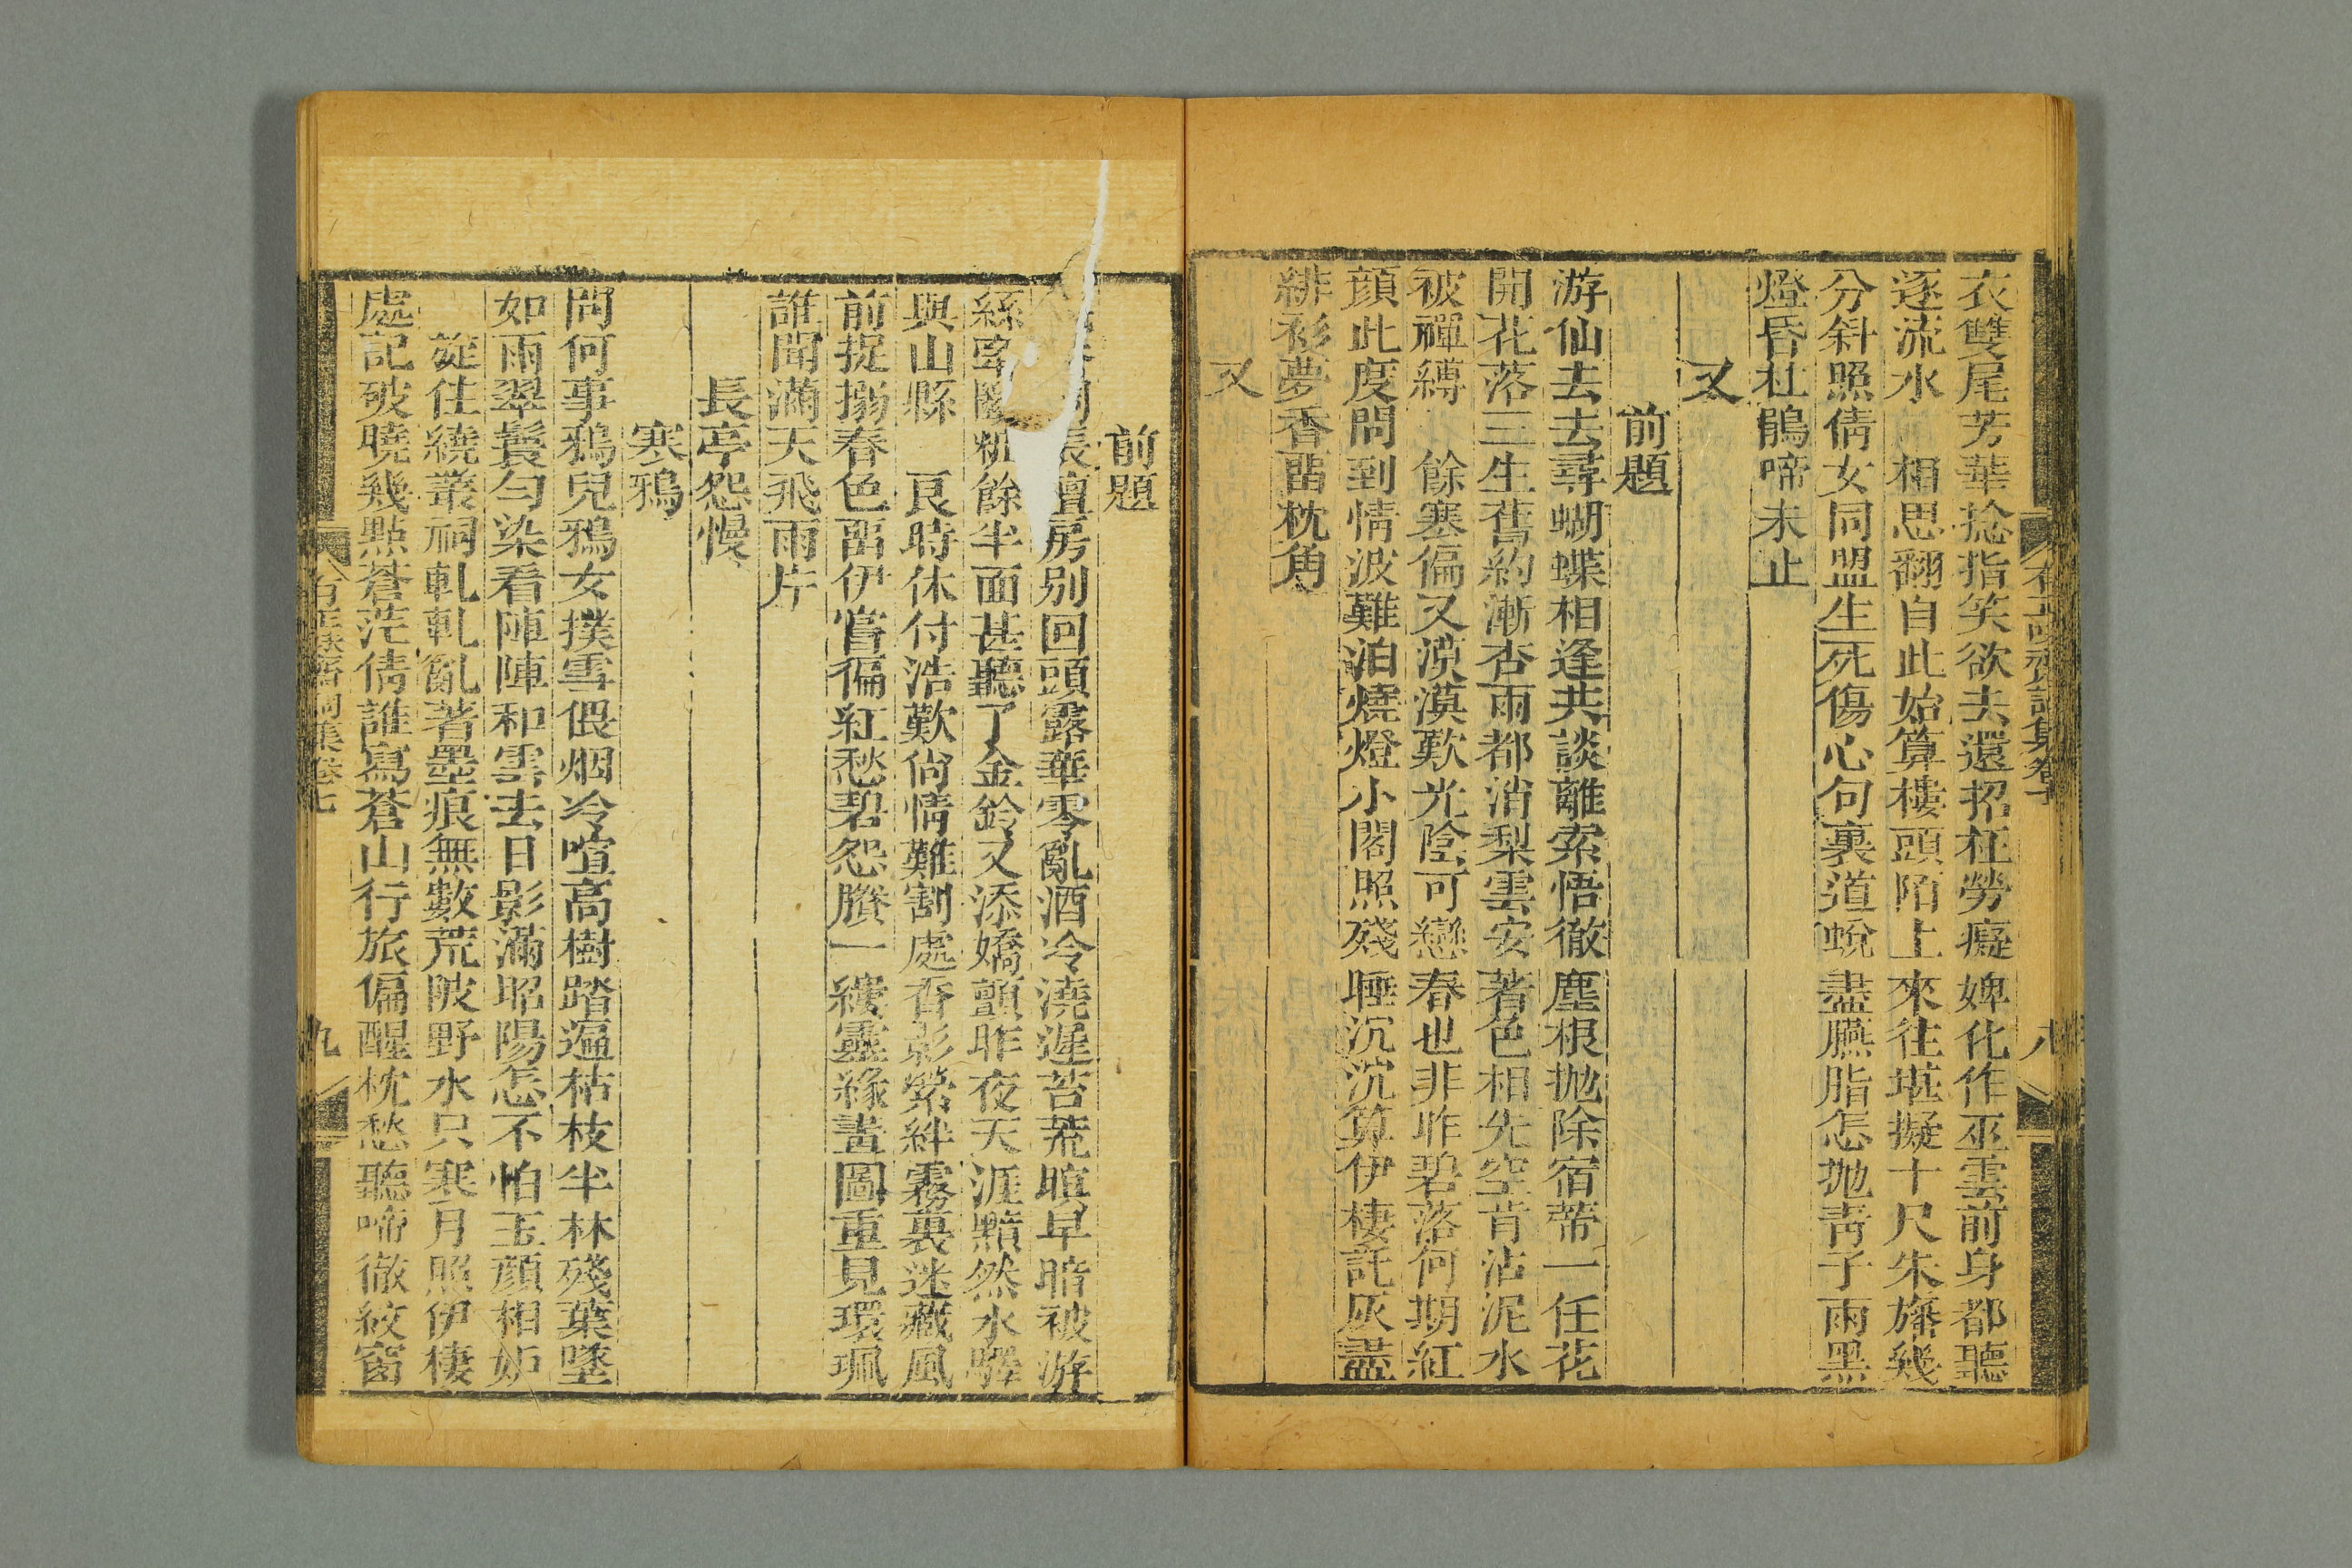 衣雙尾芳華捻指笑欲去還招枉勞癡婢化作巫雲前身都聽
逐流水　相思翻自此始算樓頭陌上來往堪擬十尺朱旛幾
分斜照倩女同盟生死傷心句裏道蛻盡臙脂怎抛靑子雨黑
燈昏杜鵑啼未止
又
前題
游仙去去尋蝴蝶相逢共談離索悟徹塵根抛除宿蒂一任花
開花落三生舊約漸杏雨都消梨雲安著色相先空肯沾泥水
被禪縛　餘塞偏又漠漠歎光陰可戀春也非昨碧落何期紅
顔此度問到情波難泊燒燈小閣照殘睡沉沉算伊棲託灰盡
緋衫夢香畱枕角
又
八
前題
長壇房别回頭露華零亂酒冷澆遲苔荒暝早暗被游
絲餘半面甚聽了金鈴又添嬌顫昨夜天涯黯然水驛
與山縣　良時休付浩歎尙情難割處香影縈絆霧裏迷藏風
前捉搦春色畱伊嘗徧紅愁碧怨賸一縷靈緣畫圖重見環珮
誰聞滿天飛雨片
長亭怨慢
寒鴉
問何事鴉兒鴉女撲雪偎烟冷喧高樹踏遍枯枝半林殘葉墜
如雨翠鬟勻染看陣陣和雲去日影滿昭陽怎不怕玉顔相妒
　旋住繞叢祠軋軋亂著墨痕無數荒陂野水只寒月照伊棲
處記破曉幾點蒼茫倩誰寫蒼山行旅偏醒枕愁聽啼徹紋窗
集卷七
九